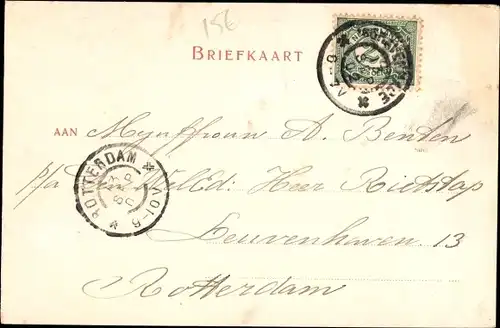 15E
BRIEFKAART
AAN Mejuffrouw A. Benten
p/a Den WelEd: Heer Rietstap
Leuvenhaven. 13
Rotterdam
ROTTERDAM